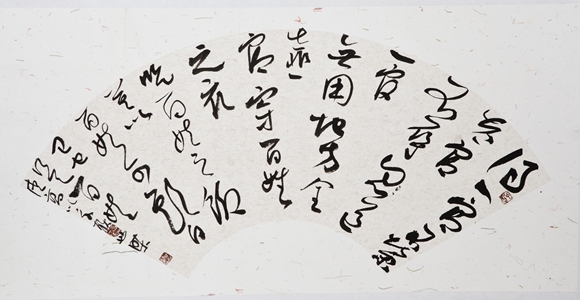 得一官不榮
失一
官不辱勿道
一官
無用地方全
靠一
官穿百姓
之衣
吃百姓之飯
莫以
百姓可欺
自己也是百姓